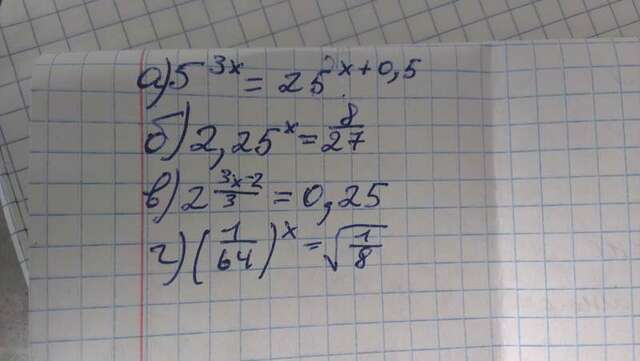 а) 5^{3x} = 25^{x+0,5}
б) 2,25^x = \frac{8}{27}
в) 2^{\frac{3x-2}{3}} = 0,25
г) (\frac{1}{64})^x = \sqrt{\frac{1}{8}}